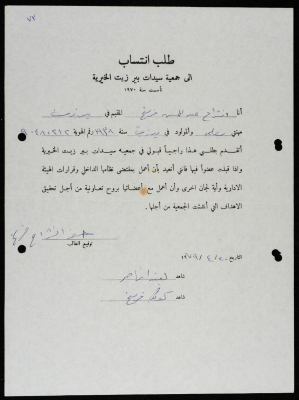 ٧٢
طلب انتساب
الى جمعية سيدات بير زيت الخيرية
تأسست سنة ١٩٧٠
أنا المقيم في بيرزيت
مهنتي معلمة والمولود في بيرزيت سنة ١٩٣٨ رقم الهوية ٩٠٤٨٠٢١٢
أتقدم بطلبي هذا راجياً قبولي في جمعية سيدات بير زيت الخيرية
واذا قبلت عضواً فيها فاني أتعهد بأن أعمل بمقتضى نظامها الداخلي وقرارات الهيئة
الادارية وأية لجان اخرى وأن أعمل مع أعضائها بروح تعاونية من أجل تحقيق
الاهداف التي أنشئت الجمعية من أجلها.
توقيع الطالب
التاريخ
شاهد
شاهد